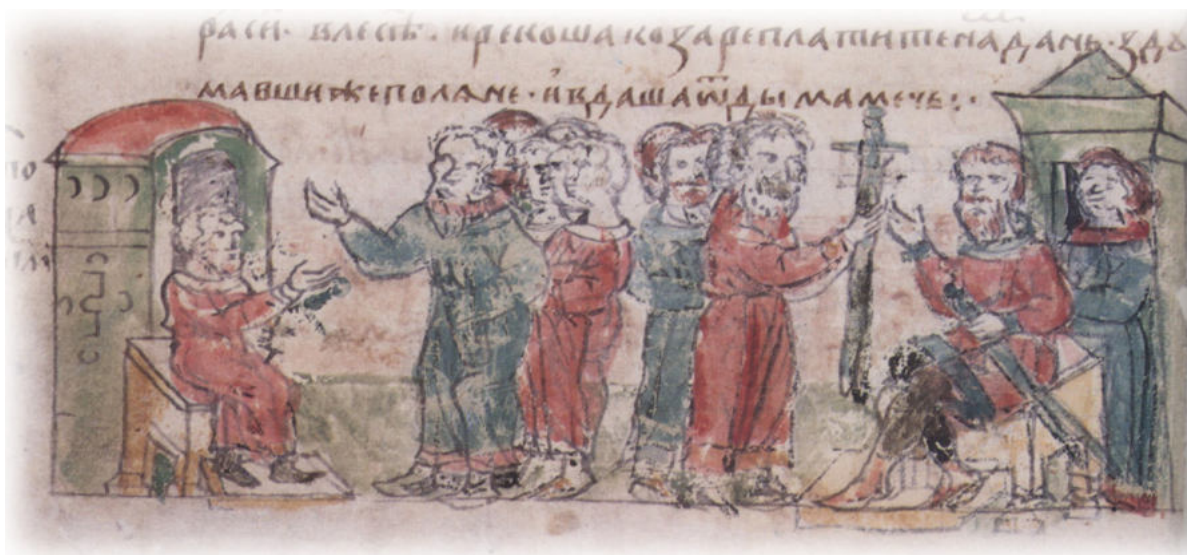 раси· влесѣ· ирекошакозареплатитенадань· зду
мавшижеполяне· ивдашаѿдымамечь:·